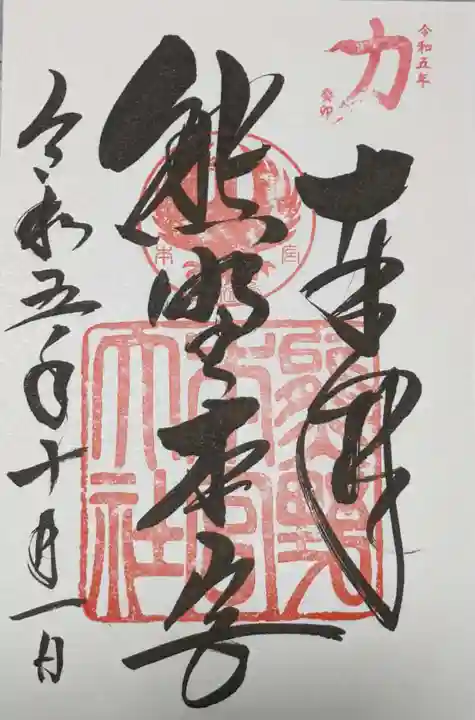 令和五年
癸卯
力
奉拝
熊野本宮
熊野
本宮
大社
令和五年十月一日